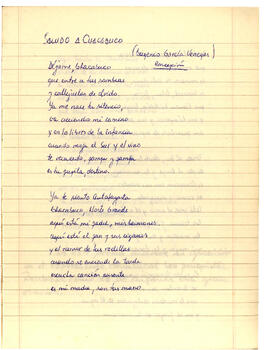 SALUDO A CHACABUCO
(Eugenio García Venegas)
Concepción
Déjame, Chacabuco
que entre a tus sombras
y callejuelas de olvido.
Ya me nace tu silencio,
va creciendo mi camino
y en los libros de la infancia
cuando moja el sol y el vino
te recuerdo, sangre y sangre
es tu pupila, destino.
Ya te siento Antofagasta
Chacabuco, Norte Grande
aquí está mi padre, mis hermanos
aquí está el pan y sus
y el rumor de tus rodillas
cuando se enciende la tarde
escucha canción ausente
es mi madre, son tus manos.